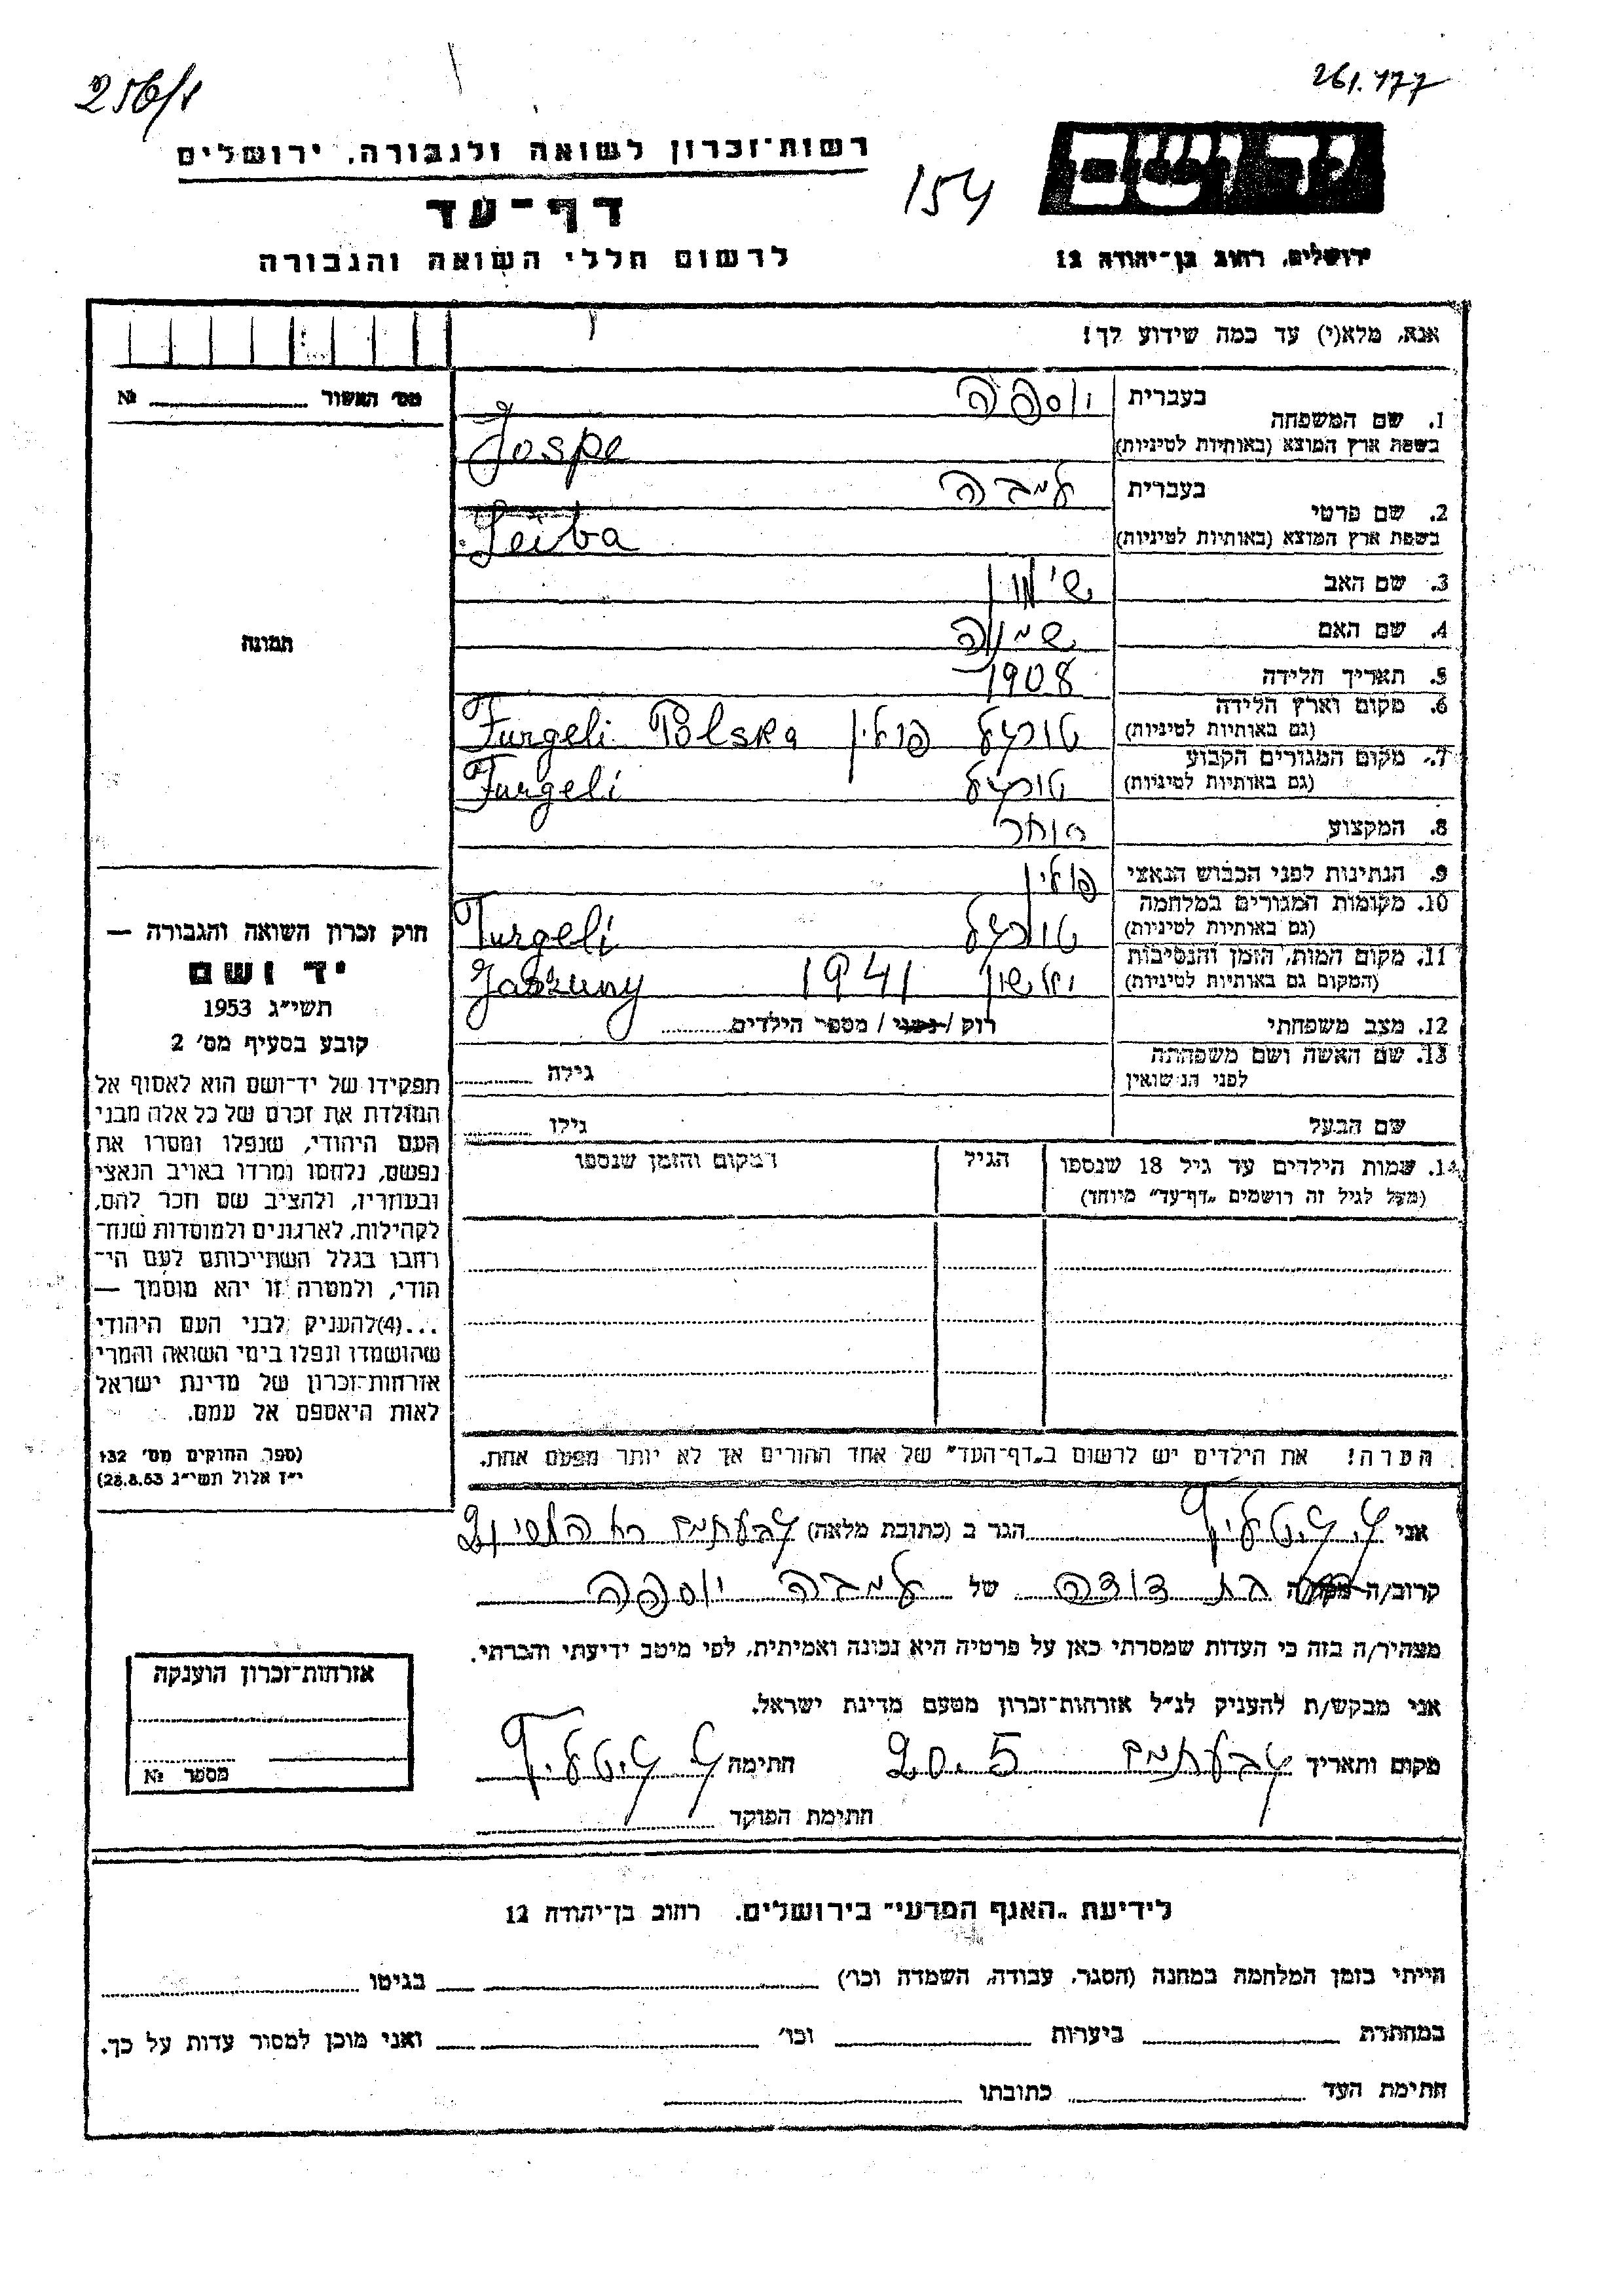 256/1
261.177
רשות־זכרון לשואה ולגבורה, ירושלים
154
יד ושם
דף־עד
לרשום חללי השואה והגבורה
ירושלים, רחוב בן־יהודה 12
אנא, מלא(י) עד כמה שידוע לך!
מס׳ האשור № 
1. שם המשפחה
בעברית יוספה
בשפת ארץ המוצא (באותיות לטיניות) Jospe
2. שם פרטי
בעברית לייבה
בשפת ארץ המוצא (באותיות לטיניות) Leiba
3. שם האב שימון
4. שם האם
5. תאריך הלידה 1908
6. מקום וארץ הלידה
(גם באותיות לטיניות) טורגעל פולין Turgeli Polska
7. מקום המגורים הקבוע
(גם באותיות לטיניות) טורגעל Turgeli
8. המקצוע סוחר
9. הנתינות לפני הכבוש הנאצי פולין
10. מקומות המגורים במלחמה
(גם באותיות לטיניות) טורגעל Turgeli
11. מקום המות, הזמן והנסיבות
(המקום גם באותיות לטיניות) 1941
12. מצב משפחתי רוק / נשוי / מספר הילדים
13. שם האשה ושם משפחתה
לפני הנשואין גילה
שם הבעל גילו
14. שמות הילדים עד גיל 18 שנספו
(מעל לגיל זה רושמים „דף־עד״ מיוחד)
הגיל
המקום והזמן שנספו
הערה! את הילדים יש לרשום ב„דף־העד״ של אחד ההורים אך לא יותר מפעם אחת.
תמונה
חוק זכרון השואה והגבורה —
יד ושם
תשי״ג 1953
קובע בסעיף מס׳ 2
תפקידו של יד־ושם הוא לאסוף אל
המולדת את זכרם של כל אלה מבני
העם היהודי, שנפלו ומסרו את
נפשם, נלחמו ומרדו באויב הנאצי
ובעוזריו, ולהציב שם וזכר להם,
לקהילות, לארגונים ולמוסדות שנח־
רחבו בגלל השתייכותם לעם הי־
הודי, ולמטרה זו יהא מוסמך —
...(4)להעניק לבני העם היהודי
שהושמדו ונפלו בימי השואה והמרי
אזרחות־זכרון של מדינת ישראל
לאות היאספם אל עמם.
(ספר החוקים מס׳ 132
י״ז אלול תשי״ג 28.8.53)
אני הגר ב (כתובת מלאה) גבעתיים
קרוב/ה בת דודה של לייבה יוספה
מצהיר/ה בזה כי העדות שמסרתי כאן על פרטיה היא נכונה ואמיתית, לפי מיטב ידיעתי והכרתי.
אני מבקש/ת להעניק לנ״ל אזרחות־זכרון מטעם מדינת ישראל.
מקום ותאריך גבעתיים 20.5 חתימה
חתימת הפוקד
אזרחות־זכרון הוענקה
מספר №
לידיעת „האגף המדעי״ בירושלים, רחוב בן־יהודה 12
הייתי בזמן המלחמה במחנה (הסגר, עבודה, השמדה וכו׳) בגיטו
במחתרת ביערות וכו׳ ואני מוכן למסור עדות על כך.
חתימת העד כתובתו